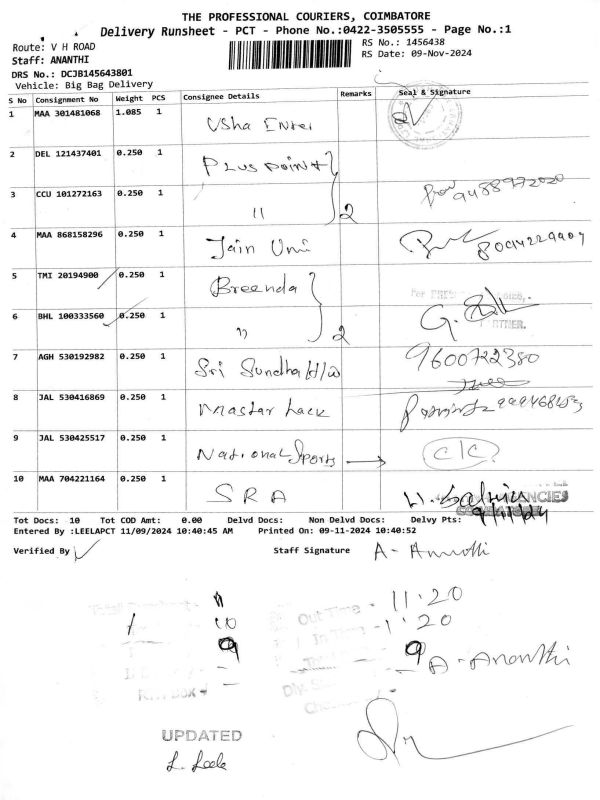 THE PROFESSIONAL COURIERS, COIMBATORE
Delivery Runsheet - PCT - Phone No.:0422-3505555 - Page No.:1
Route: V H ROAD
RS No.: 1456438
Staff: ANANTHI
RS Date: 09-Nov-2024
DRS No.: DCJB145643801
Vehicle: Big Bag Delivery
S No Consignment No Weight PCS Consignee Details Remarks Seal & Signature
1 MAA 301481068 1.085 1 Usha Enter
2 DEL 121437401 0.250 1 Plus point
3 CCU 101272163 0.250 1 11 2 9488972020
4 MAA 868158296 0.250 1 Jain Uni
5 TMI 20194900 0.250 1 Breenda
6 BHL 100333560 0.250 1 11 2 G.
7 AGH 530192982 0.250 1 Sri Sundha H/w 9600722380
8 JAL 530416869 0.250 1 Master Lack
9 JAL 530425517 0.250 1 National Sports → C/C
10 MAA 704221164 0.250 1 SRA
Tot Docs: 10 Tot COD Amt: 0.00 Delvd Docs: Non Delvd Docs: Delvy Pts: 9/11/24
Entered By :LEELAPCT 11/09/2024 10:40:45 AM Printed On: 09-11-2024 10:40:52
Verified By Staff Signature A- Ananthi
Out Time - 11.20
10 In Time - 1.20
9 9 A- Ananthi
UPDATED
L. Leela